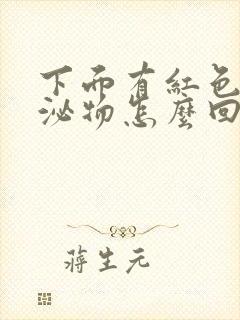 下面有紅色
泌物怎麼回
蔣生元